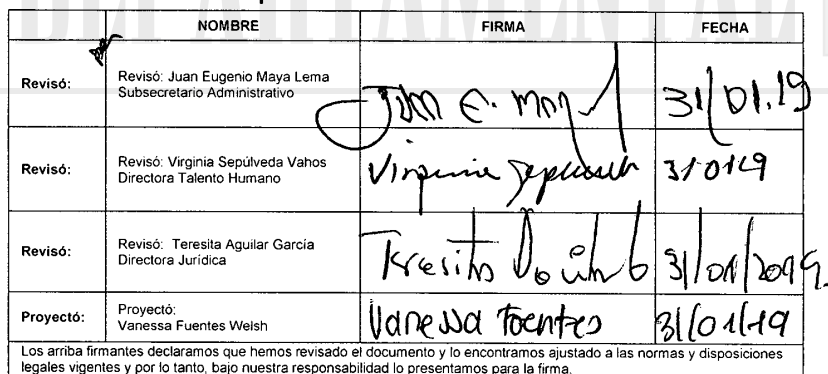 DEPARTAMENTAL
NOMBRE FIRMA FECHA
Revisó: Revisó: Juan Eugenio Maya Lema
Subsecretario Administrativo
Juan E. Maya 31/01.19
Revisó: Revisó: Virginia Sepúlveda Vahos
Directora Talento Humano
Virginia Sepúlveda 310119
Revisó: Revisó: Teresita Aguilar García
Directora Jurídica
Teresita Aguilar G 31/01/2019.
Proyectó: Proyectó:
Vanessa Fuentes Welsh
Vanessa Fuentes 31/01/19
Los arriba firmantes declaramos que hemos revisado el documento y lo encontramos ajustado a las normas y disposiciones
legales vigentes y por lo tanto, bajo nuestra responsabilidad lo presentamos para la firma.